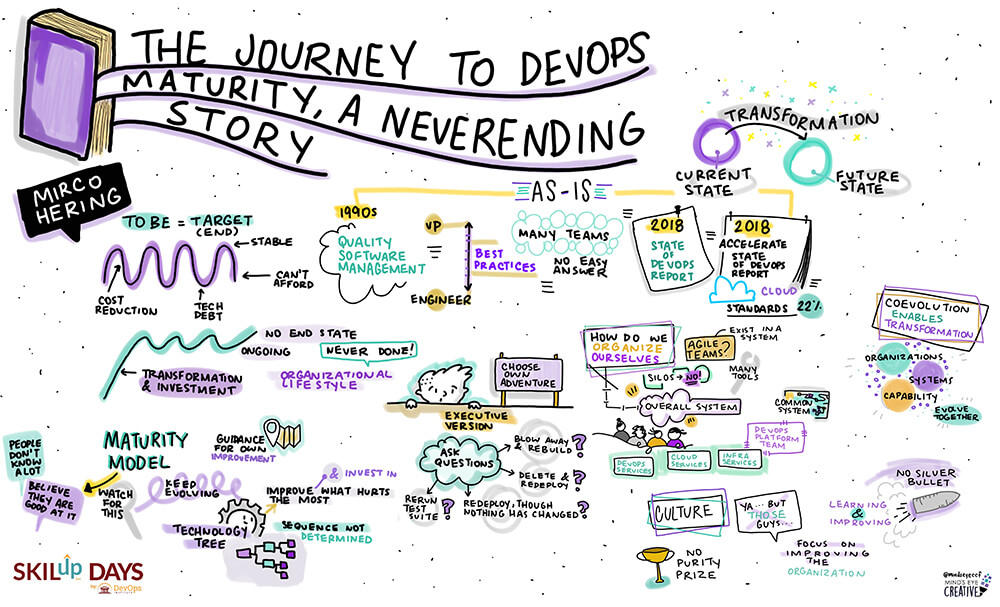 THE JOURNEY TO DEVOPS
MATURITY, A NEVERENDING
STORY
MIRCO
HERING
TRANSFORMATION
CURRENT
STATE
FUTURE
STATE
AS-IS
TO BE = TARGET
(END)
STABLE
CAN'T
AFFORD
COST
REDUCTION
TECH
DEBT
1990s
QUALITY
SOFTWARE
MANAGEMENT
VP
ENGINEER
BEST
PRACTICES
MANY TEAMS
NO EASY
ANSWER
2018
STATE
OF
DEVOPS
REPORT
2018
ACCELERATE
STATE OF DEVOPS
REPORT
CLOUD
STANDARDS
22%
NO END STATE
ONGOING
NEVER DONE!
TRANSFORMATION
& INVESTMENT
ORGANIZATIONAL
LIFESTYLE
CHOOSE
OWN
ADVENTURE
EXECUTIVE
VERSION
HOW DO WE
ORGANIZE
OURSELVES
AGILE
TEAMS?
EXIST IN A
SYSTEM
SILOS → NO!
MANY
TOOLS
OVERALL SYSTEM
COMMON
SYSTEM
DEVOPS
PLATFORM
TEAM
DEVOPS
SERVICES
CLOUD
SERVICES
INFRA
SERVICES
COEVOLUTION
ENABLES
TRANSFORMATION
ORGANIZATIONS
SYSTEMS
CAPABILITY
EVOLVE
TOGETHER
PEOPLE
DON'T
KNOW
A LOT
BELIEVE
THEY ARE
GOOD AT IT
MATURITY
MODEL
WATCH
FOR
THIS
KEEP
EVOLVING
GUIDANCE
FOR OWN
IMPROVEMENT
& INVEST IN
IMPROVE WHAT HURTS
THE MOST
TECHNOLOGY
TREE
SEQUENCE NOT
DETERMINED
ASK
QUESTIONS
BLOW AWAY
& REBUILD?
DELETE &
REDEPLOY?
RERUN
TEST
SUITE?
REDEPLOY, THOUGH
NOTHING HAS CHANGED?
CULTURE
YA... BUT
THOSE
GUYS...
NO
PURITY
PRIZE
FOCUS ON
IMPROVING
THE
ORGANIZATION
LEARNING
&
IMPROVING
NO SILVER
BULLET
SKILup DAYS
DevOps
@mindseyeccf
MIND'S EYE
CREATIVE